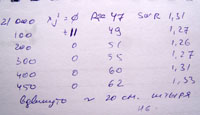 21 000 xj' = 0 47 SWR 1,31
100 + 11 49 1,27
200 0 51 1,26
300 0 55 1,27
400 0 60 1,31
450 0 62 1,33
≈ 20 см.